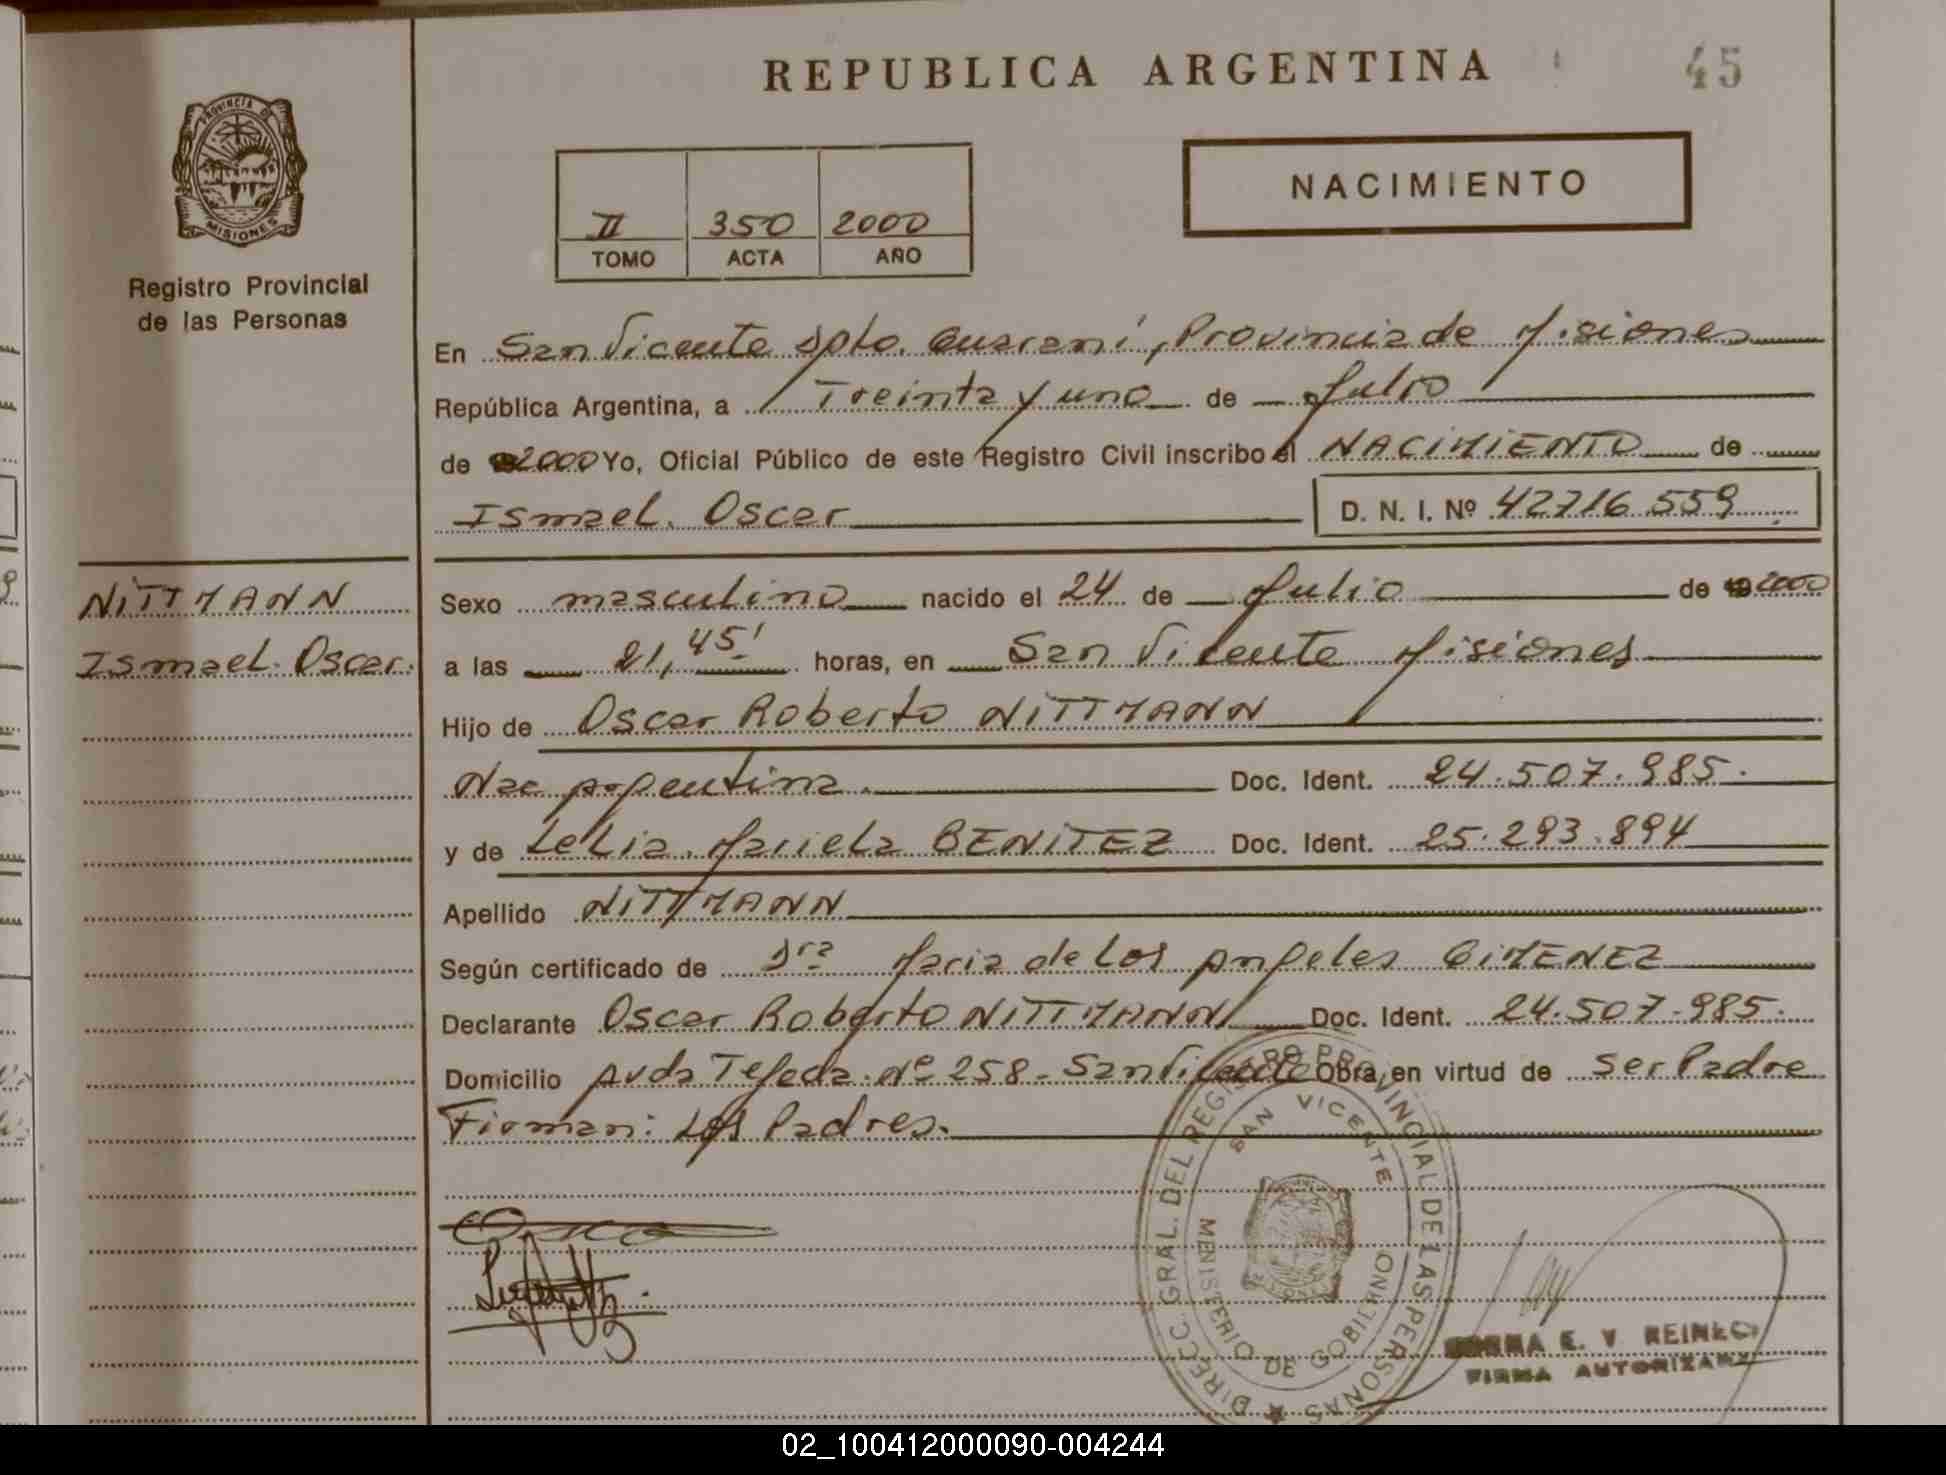 REPUBLICA ARGENTINA
45
PROVINCIA DE
MISIONES
Registro Provincial
de las Personas
II 350 2000
TOMO ACTA AÑO
NACIMIENTO
En San Vicente Dpto. Guaraní, Provincia de Misiones
República Argentina, a Treinta y uno de Julio
de 2000 Yo, Oficial Público de este Registro Civil inscribo el NACIMIENTO de
Ismael. Oscar D. N. I. Nº 42716.559
NITTMANN
Ismael. Oscar.
Sexo masculino nacido el 24 de Julio de 19 2000
a las 21,45' horas, en San Vicente Misiones
Hijo de Oscar Roberto NITTMANN
Nac Argentina. Doc. Ident. 24.507.985.
y de Lelia. Mariela BENITEZ Doc. Ident. 25.293.894
Apellido NITTMANN
Según certificado de Dra Maria de Los Angeles GIMENEZ
Declarante Oscar Roberto NITTMANN Doc. Ident. 24.507.985.
Domicilio Avda Tejeda. Nº 258 - San Vicente Obra, en virtud de Ser Padre
Firman: Los Padres.
DIRECC. GRAL. DEL REGISTRO PROVINCIAL DE LAS PERSONAS
SAN VICENTE
MENISTERIO DE GOBILRNO
E. V. REINECK
FIRMA AUTORIZADA
02_100412000090-004244